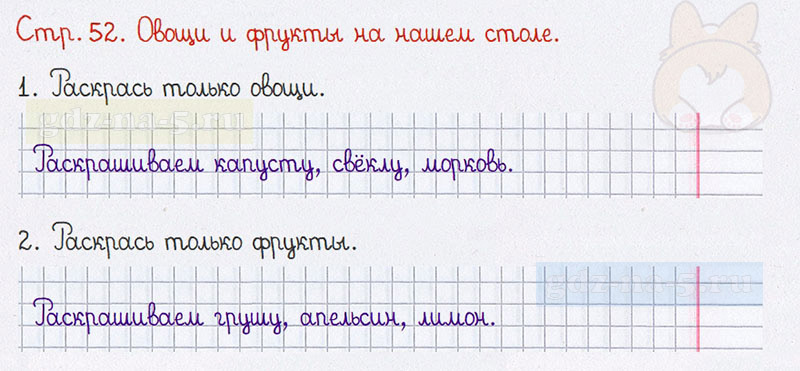 Стр. 52. Овощи и фрукты на нашем столе.
1. Раскрась только овощи.
gdz-na-5.ru
Раскрашиваем капусту, свёклу, морковь.
2. Раскрась только фрукты.
gdz-na-5.ru
Раскрашиваем грушу, апельсин, лимон.